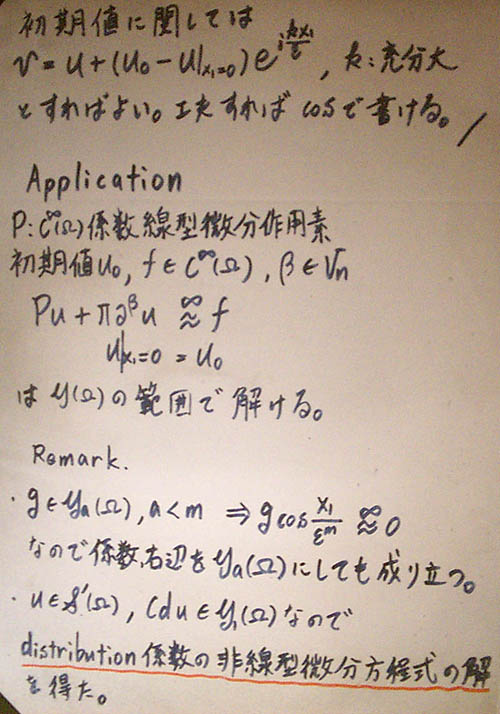 初期値に関しては
v = u + (u₀ - u|x₁=0) e^{i kx₁/ε}, k:充分大
とすればよい。工夫すれば cosで書ける。/
Application
P: C^∞(Ω)係数線型微分作用素
初期値u₀, f ∈ C^∞(Ω), β ∈
Pu + π∂^β u ≈^∞ f
u|x₁=0 = u₀
は 𝒴(Ω)の範囲で解ける。
Remark.
・g ∈ 𝒴a(Ω), a < m ⇒ g cos x₁/ε^m ≈^∞ 0
なので係数,右辺を 𝒴a(Ω)にしても成り立つ。
・u ∈ 𝒮'(Ω), Cdu ∈ 𝒴₁(Ω)なので
distribution係数の非線型微分方程式の解
を得た。